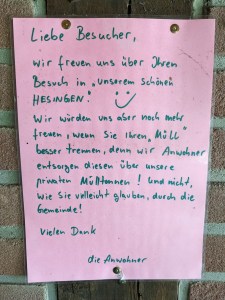 Liebe Besucher,
wir freuen uns über Ihren
Besuch in „unserem schönen
HESINGEN“.
Wir würden uns aber noch mehr
freuen, wenn Sie Ihren „Müll“
besser trennen, denn wir Anwohner
entsorgen diesen über unsere
privaten Mülltonnen! Und nicht,
wie Sie vielleicht glauben, durch die
Gemeinde!
Vielen Dank
die Anwohner